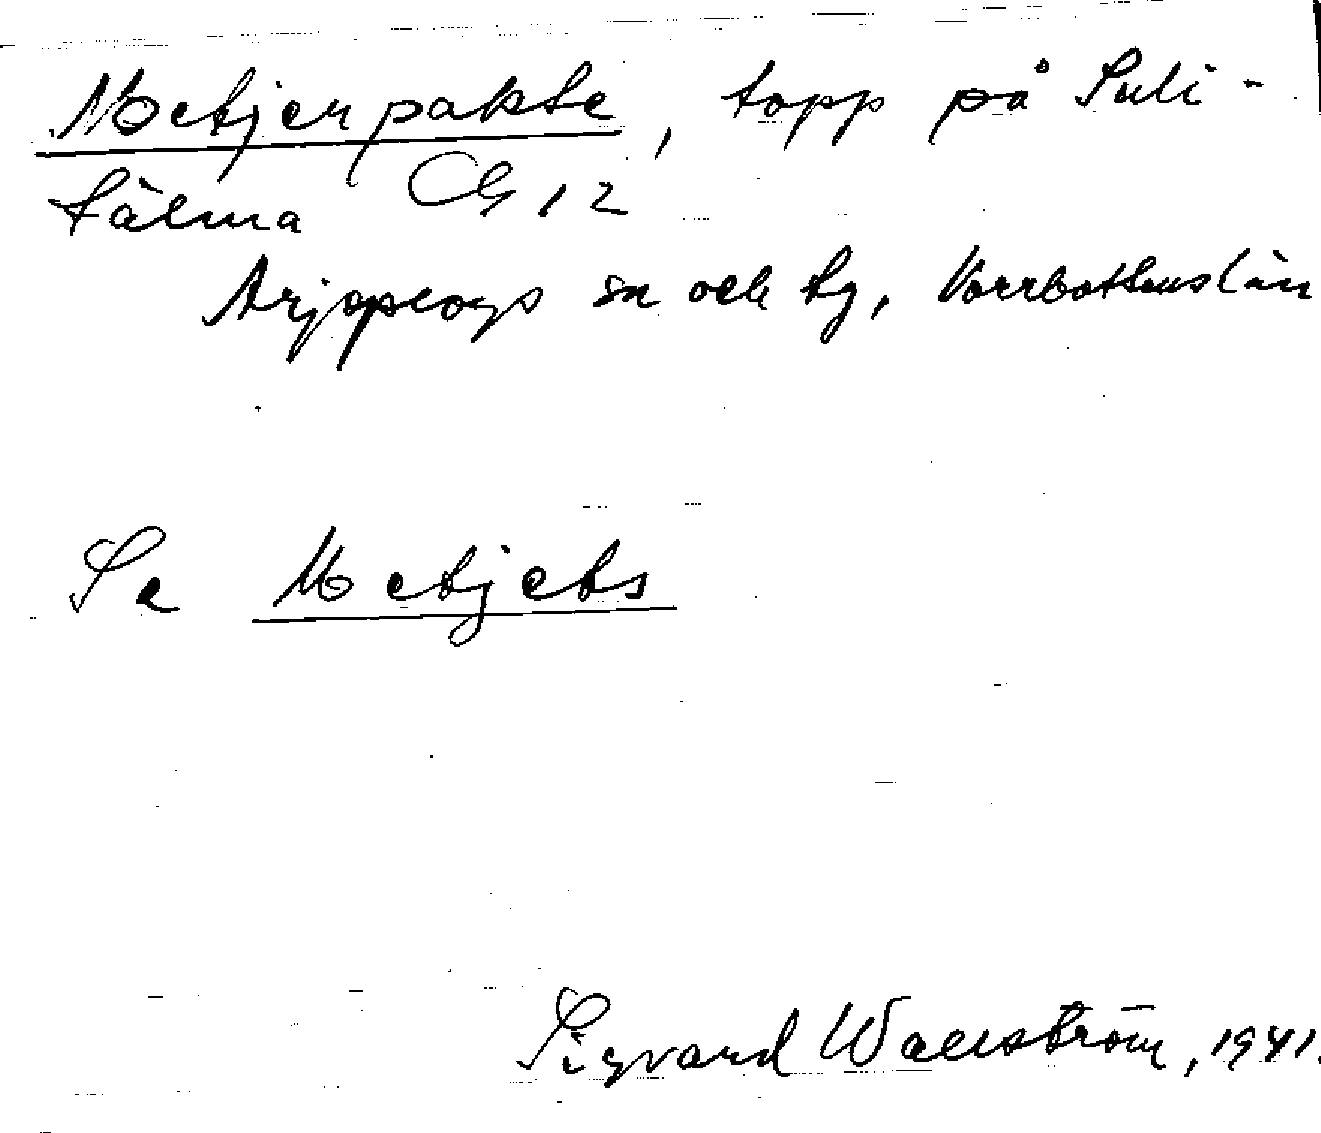 Metjerpakte, topp på Suli-
tälma G 12
Arjeplogs sn och tg, Norrbottens län
Se Metjets
Sigvard Wallström, 1941.